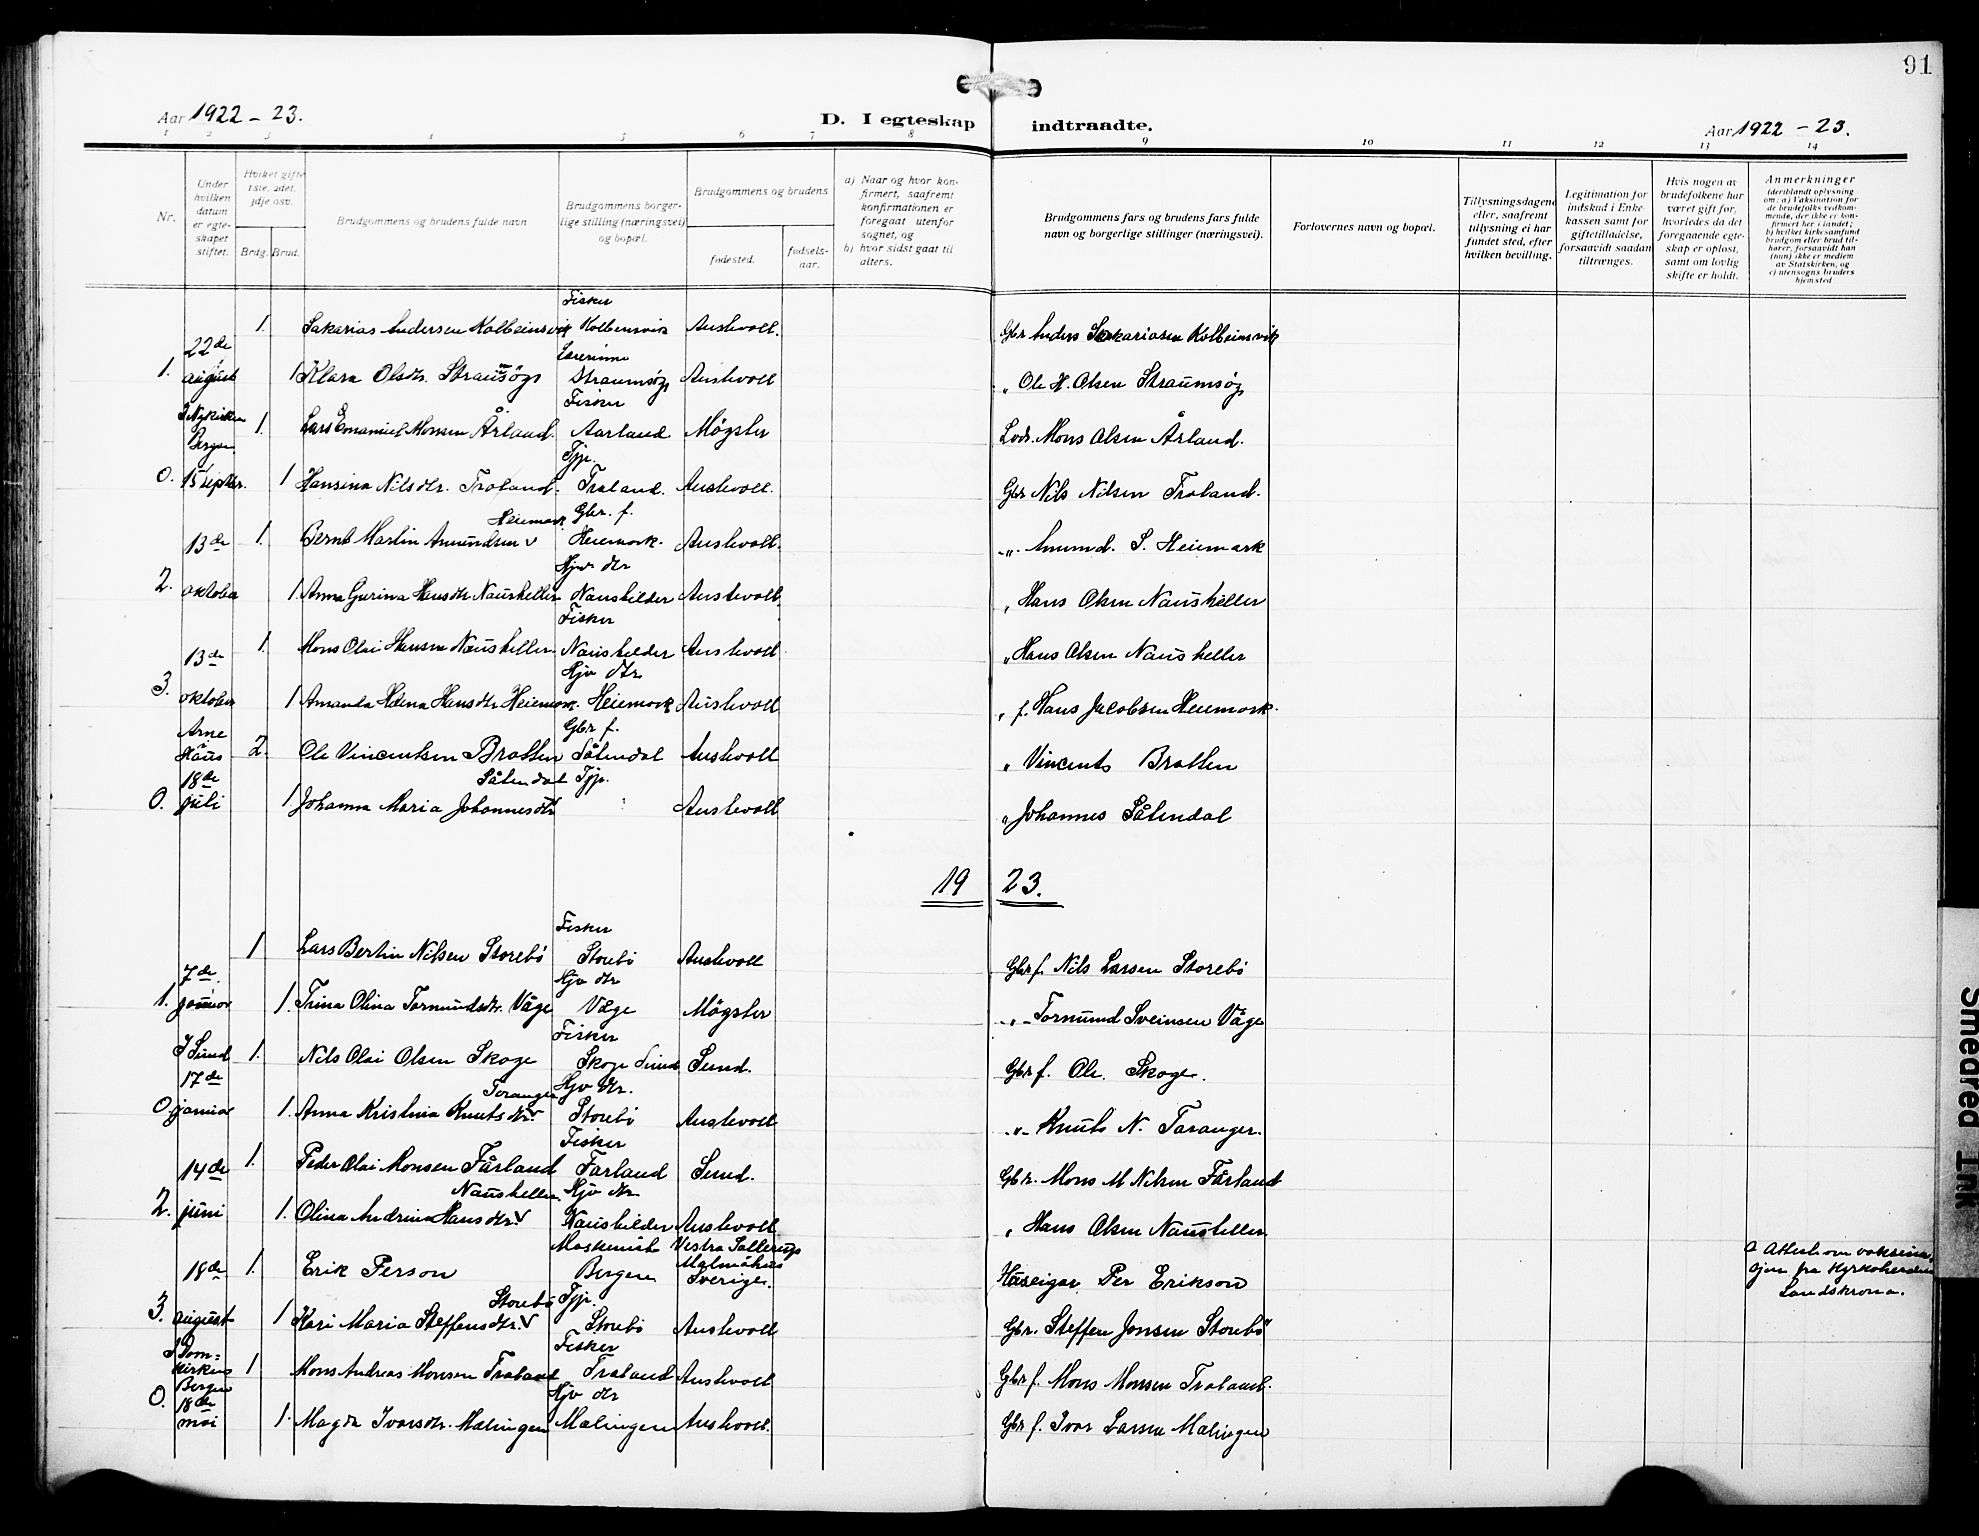 91
Aar 1922 - 23.
D. I egteskap indtraadte.
Aar 1922 - 23.
1 2 3 4 5 6 7 8 9 10 11 12 13 14
Nr.
Under hvilken datum er egteskapet stiftet.
Hvilket gifte 1ste, 2det, 3dje osv.
Brdg. Brud.
Brudgommens og brudens fulde navn
Brudgommens borgerlige stilling (næringsvei) og bopæl.
Brudgommens og brudens
fødested.
fødselsaar.
a) Naar og hvor konfirmert, saafremt konfirmationen er foregaat utenfor sognet, og
b) hvor sidst gaat til alters.
Brudgommens fars og brudens fars fulde navn og borgerlige stillinger (næringsvei).
Forlovernes navn og bopæl.
Tillysningsdagene eller, saafremt tillysning ei har fundet sted, efter hvilken bevilling.
Legitimation for indskud i Enkekassen samt for giftetilladelse, forsaavidt saadan tiltrænges.
Hvis nogen av brudefolkene har været gift før, hvorledes da det foregaaende egteskap er opløst, samt om lovlig skifte er holdt.
Anmerkninger
(deriblandt oplysning om: a) Vaksination for de brudefolks vedkommende, der ikke er konfirmert her i landet; b) hvilket kirkesamfund brudgom eller brud tilhører, forsaavidt han (hun) ikke er medlem av Statskirken, og c) utensogns bruders hjemsted
Fisker
1. Sakarias Andersen Kolbeinsvik Kolbensvik Austevoll. Gbr Anders Sakariasen Kolbeinsvik
22de
Lærerinne
1. august 1 Klara Olsdtr. Straumsøy Straumsøy Austevoll " Ole H. Olsen Straumsøy
Fisker
I Nykirken
Bergen 1. Lars Emanuel Monsen Årland. Aarland Møgster Lods. Mons Olsen Årland.
Tjp.
0. 15 septbr. 1 Hansina Nilsdtr. Troland. Troland. Austevoll. Gbr Nils Nilsen Troland.
Heiemark Gbr. f.
13de 1. Bernt Martin Amundsen v Heiemark. Austevoll. -"- Amund. S. Heiemark
Hjv dtr
2. oktober 1. Anna Gurina Hansdtr Nausheller Naushilder Austevoll. " Hans Olsen Nausheller
Fisker
13de 1. Mons Olai Hansen Nausheller. Naushelder Austevoll " Hans Olsen Nausheller
Hjv dtr
3. oktober 1 Amanda Helena Hansdtr Heiemark. Heiemark Austevoll " f. Hans Jacobsen Heiemark.
Arne
Gbr f.
Håus 2. Ole Vincentsen Bratten Såtendal Austevoll " Vincents Bratten
18de
Såtendal Tjp.
0. juli 1 Johanna Maria Johannesdtr Austevoll " Johannes Såtendal
19 23.
Fisker
1 Lars Bertin Nilsen Storebø Storebø Austevoll Gbr f. Nils Larsen Storebø
7de
Hjv dtr
1. januar 1. Trina Olina Tormundsdtr. Våge Våge Møgster -"- Tormund Sveinsen Våge
Fisker
I Sund 1. Nils Olai Olsen Skoge Skoge Sund Sund. Gbr f. Ole. Skoge.
17de
Toranger Hjv dtr.
0. januar 1. Anna Kristina Knutsdtr. v Storebø Austevoll -"- Knuts N. Taranger.
Fisker
14de 1. Peder Olai Monsen Fårland Farland Sund. Gbr. Mons M Nilsen Fårland
Nausheller Hjv dtr
2. juni 1. Olina Andrina Hansdtr. v Naushilder Austevoll " Hans Olsen Nausheller
Maskenist Vestra Sallerups
Malmöhus
18de 1. Erik Person Bergen Sverige. Huseigar Per Erikson
a Attest om vaksina-
sjon fra Kyrkoherden
Landskrona.
Storebø Tjp.
3. august 1 Kari Maria Steffensdtr. v Storebø Austevoll Gbr. Steffen Jonsen Storebø
Fisker
I Dom=
kirken 1 Mons Andreas Monsen Troland Troland Austevoll Gbr f. Mons Monsen Troland.
Bergen
Hjv dtr
0. 18de
mai 1. Magda Ivarsdtr. Malingen Malingen Austevoll. Gbr f. Ivar Larsen Malingen
Smeared Ink